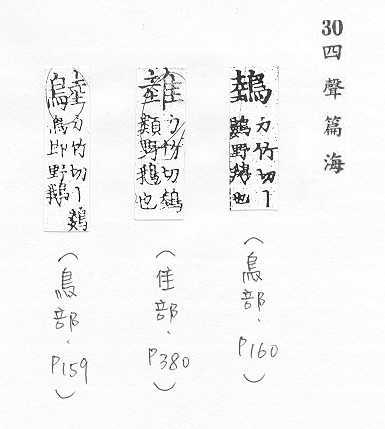 30 四聲篇海
力竹切丨
鷜野鵝也
(鳥部.P160)
力竹切鷜
類野鵝也
(佳部.P380)
力竹切丨鷜
鳥即野鵝
(鳥部.P159)